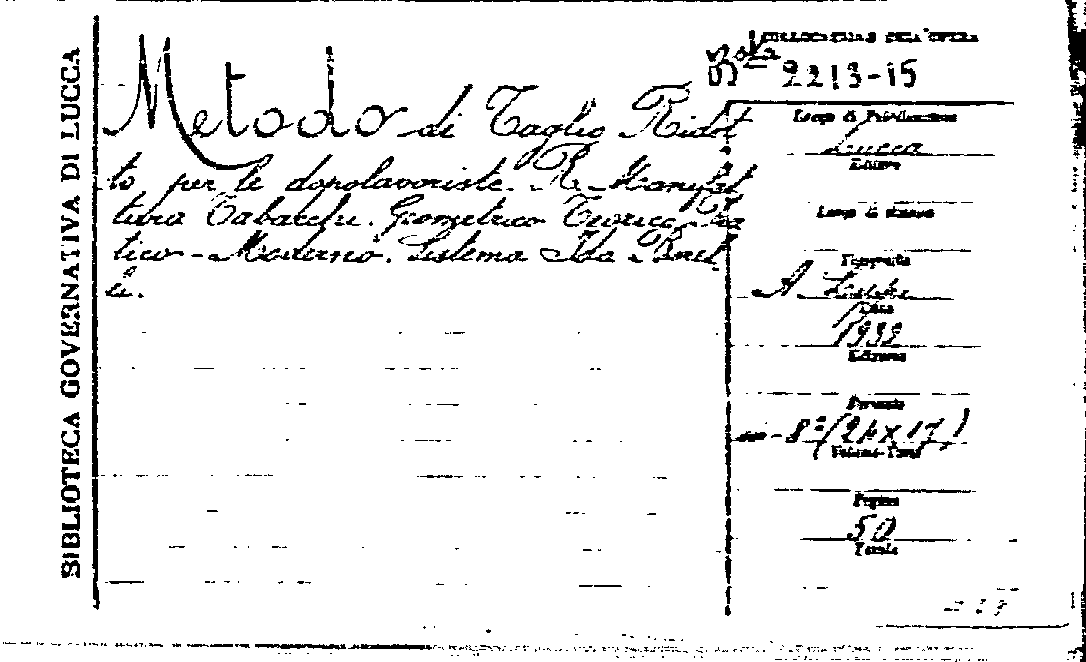 BIBLIOTECA GOVERNATIVA DI LUCCA
COLLOCAZIONE DELL'OPERA
Bta 2213-15
Metodo di Taglio Ridot
to per le dopolavoriste. R. Manifat
tura Tabacchi. Geometrico Teorico-Pra
tico-Moderno. Sistema Ida Borel
li.
Luogo di Pubblicazione
Lucca
Editore
Luogo di stampa
Tipografia
A
Data
1932
Edizione
Formato
in-8°(24x17)
Volume-Tomi
Pagine
50
Tavole